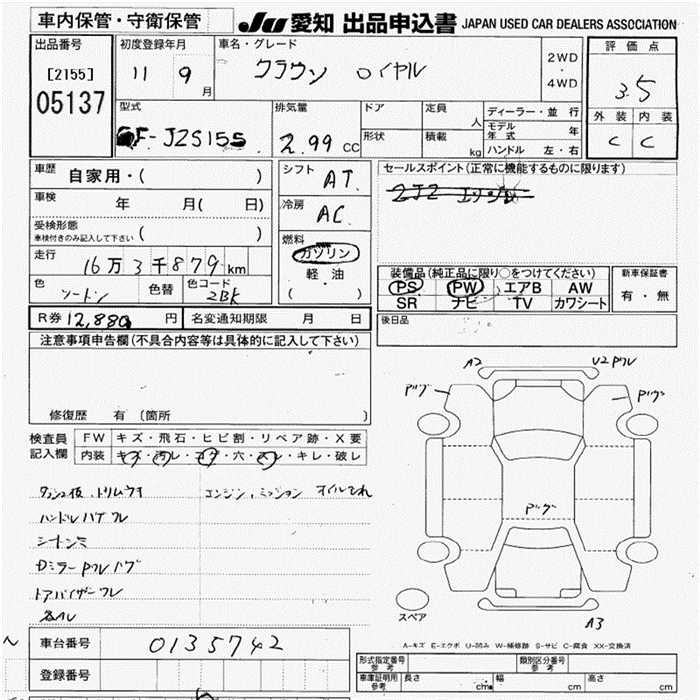 車内保管・守衛保管
JU 愛知 出品申込書 JAPAN USED CAR DEALERS ASSOCIATION
出品番号
[2155]
05137
初度登録年月
11 9 月
車名・グレード
クラウン ロイヤル
2WD
・
4WD
評価点
3.5
外装 内装
C C
型式
GF-JZS155
排気量
2.99 CC
ドア
形状
定員 人
積載 kg
ディーラー・並行
モデル年式 年
ハンドル 左・右
車歴
自家用・( )
車検
年 月( 日)
受検形態
車検付きのみ記入して下さい ( )
走行
16万3千879km
色
ツートン
色替
色コード
2BK
シフト
AT
冷房
AC
燃料
ガソリン
・
軽油
( )
R券 12,880 円
名変通知期限 月 日
セールスポイント(正常に機能するものに限ります)
2J2 エンジン
装備品(純正品に限り○をつけてください)
PS PW エアB AW
SR ナビ TV カワシート
新車保証書
有・無
後日品
注意事項申告欄(不具合内容等は具体的に記入して下さい)
修復歴 有 (箇所 )
検査員記入欄
FW キズ・飛石・ヒビ割・リペア跡・X要
内装 キズ・汚レ・コゲ・穴・スレ・キレ・破レ
ダッシュ板、トリムウキ
エンジン、ミッション オイルもれ
ハンドルハゲ スレ
シートシミ
Dミラー Pワレ ハゲ
ドアバイザーワレ
各スレ
A2
U2 Pワレ
Pハゲ
Pハゲ
Pハゲ
スペア
A3
A-キズ E-エクボ U-凹み W-補修跡 S-サビ C-腐食 XX-交換済
〜
車台番号
0135742
登録番号
形式指定番号
参考
類別区分番号
参考
車庫証明用
参考
長さ cm
幅 cm
高さ cm